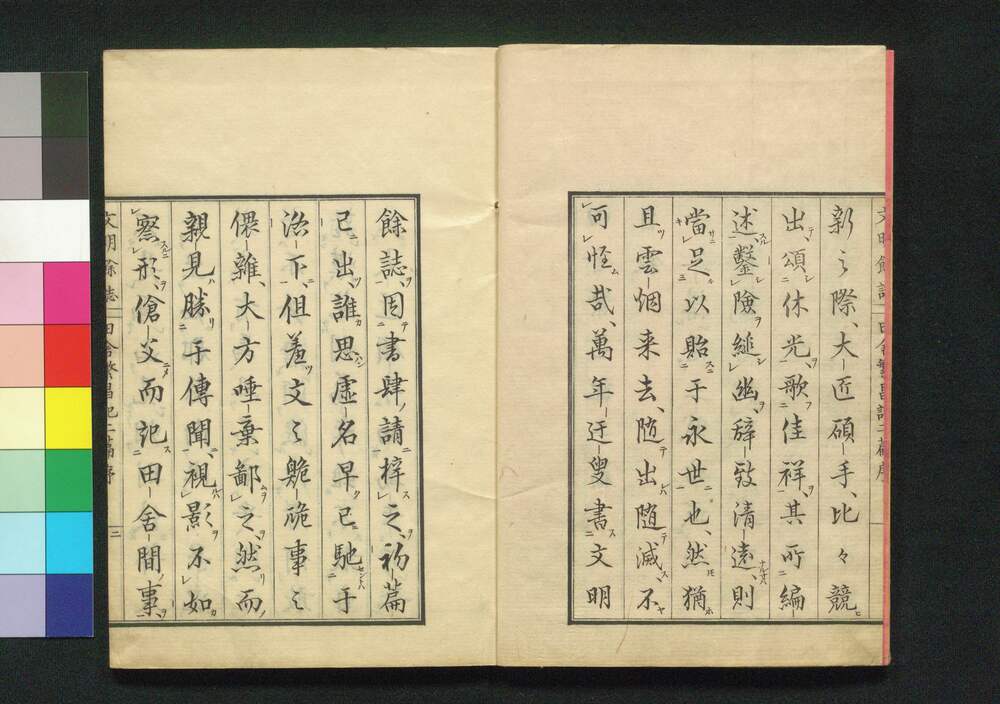 新之際、大匠碩手、比々競
出、頌休光、歌佳祥、其所編
述、鑿險縋幽、辞致清遠、則
當足以貽于永世也、然猶
且雲烟来去、随出随滅、不
可怪哉、萬年迂叟書文明
餘誌、因書肆請梓之、初篇
已出、誰思虚名早已馳于
洛下、但羞文之
事之
儂雑、大方唾棄鄙之、然而
親見勝于傳聞、視影不如
察形、傖父而記田舎間事、
文明餘誌
田舎繁昌記二篇序
二